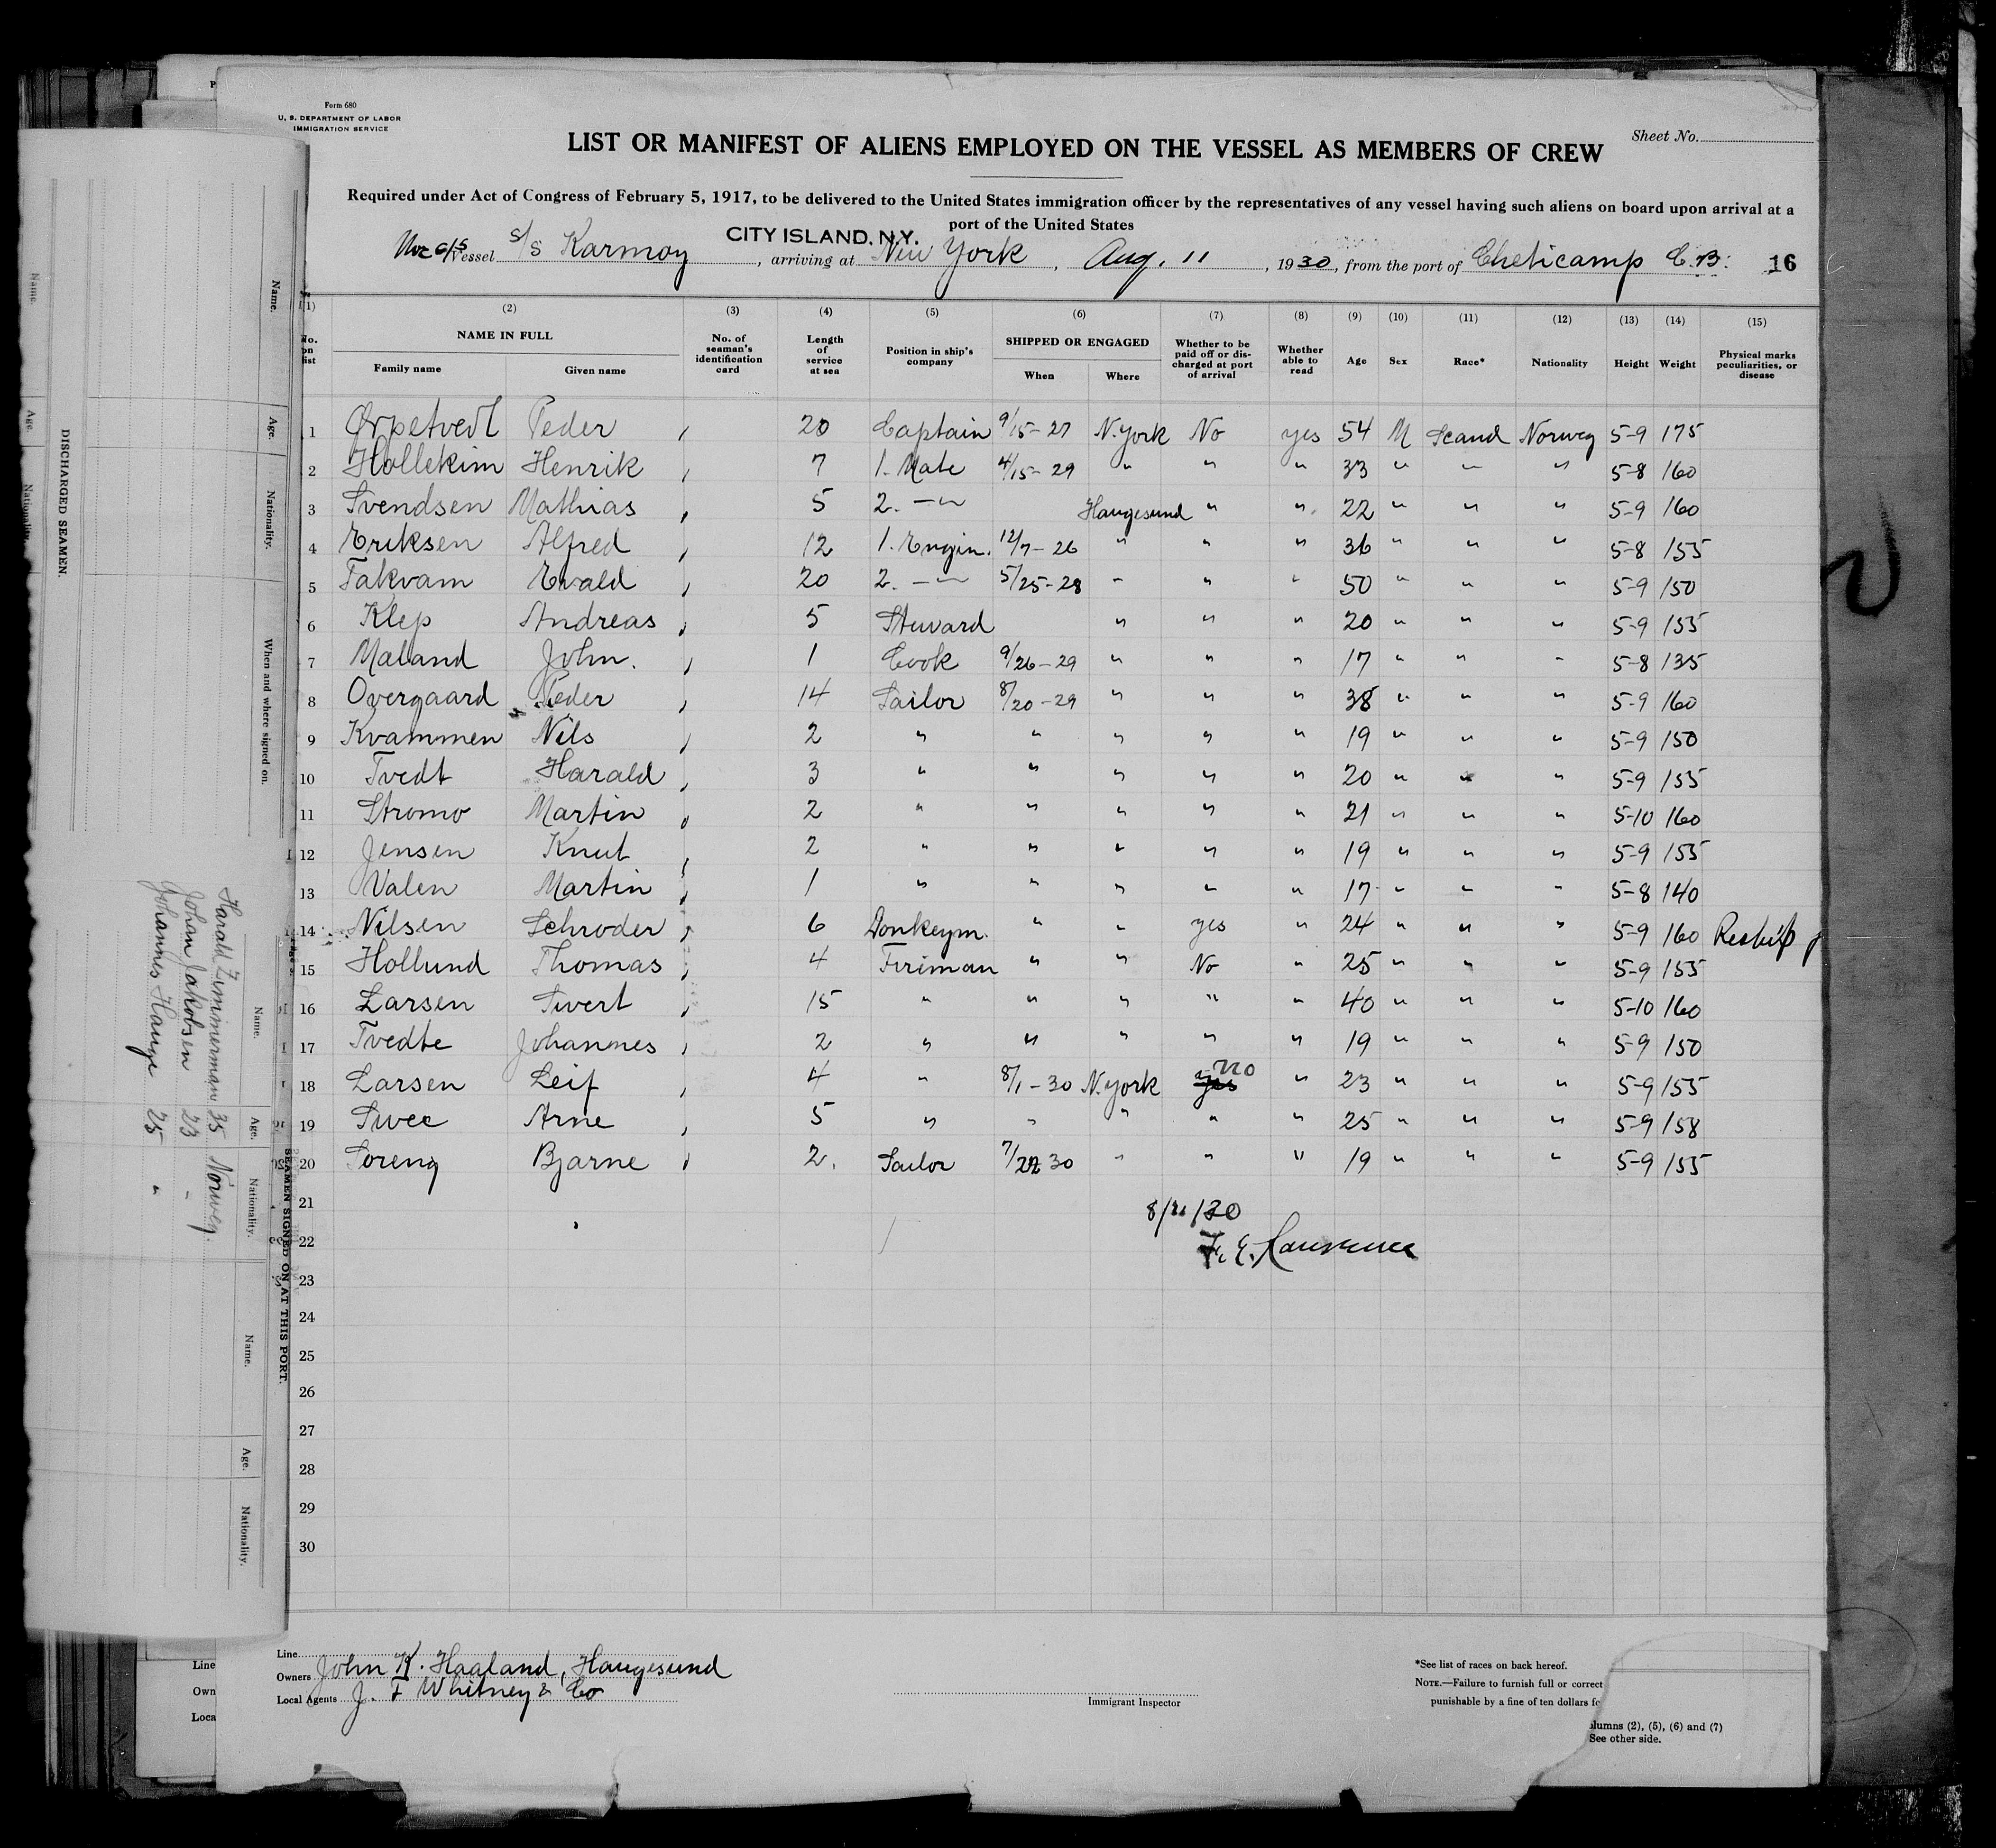 Form 680
U. S. DEPARTMENT OF LABOR
IMMIGRATION SERVICE
Sheet No.
LIST OR MANIFEST OF ALIENS EMPLOYED ON THE VESSEL AS MEMBERS OF CREW
Required under Act of Congress of February 5, 1917, to be delivered to the United States immigration officer by the representatives of any vessel having such aliens on board upon arrival at a
port of the United States
CITY ISLAND, N.Y.
Vessel S/S Karmoy, arriving at New York, Aug. 11, 1930, from the port of Cheticamp C.B. 16
(1) (2) (3) (4) (5) (6) (7) (8) (9) (10) (11) (12) (13) (14) (15)
No. on list NAME IN FULL Family name Given name No. of seaman's identification card Length of service at sea Position in ship's company SHIPPED OR ENGAGED When Where Whether to be paid off or discharged at port of arrival Whether able to read Age Sex Race* Nationality Height Weight Physical marks peculiarities, or disease
1 Orpetvedt Peder 20 Captain 9/15-27 N.York No yes 54 M Scand Norweg 5-9 175
2 Hollekim Henrik 7 1. Mate 4/15-29 " " " 33 " " " 5-8 160
3 Svendsen Mathias 5 2. " Haugesund " " 22 " " " 5-9 160
4 Eriksen Alfred 12 1. Engin. 12/7-26 " " " 36 " " " 5-8 155
5 Takvam Evald 20 2. " 5/25-28 " " " 50 " " " 5-9 150
6 Klep Andreas 5 Stuward " " " 20 " " " 5-9 155
7 Maland John. 1 Cook 9/26-29 " " " 17 " " " 5-8 135
8 Overgaard Peder 14 Sailor 8/20-29 " " " 38 " " " 5-9 160
9 Kvammen Nils 2 " " " " " 19 " " " 5-9 150
10 Tvedt Harald 3 " " " " " 20 " " " 5-9 155
11 Stromo Martin 2 " " " " " 21 " " " 5-10 160
12 Jensen Knut 2 " " " " " 19 " " " 5-9 155
13 Valen Martin 1 " " " " " 17 " " " 5-8 140
14 Nilsen Schroder 6 Donkeym. " " yes " 24 " " " 5-9 160
15 Hollund Thomas 4 Firiman " " No " 25 " " " 5-9 155
16 Larsen Sivert 15 " " " " " 40 " " " 5-10 160
17 Tvedte Johannes 2 " " " " " 19 " " " 5-9 150
18 Larsen Leif 4 " 8/1-30 N.York yes no " 23 " " " 5-9 155
19 Svee Arne 5 " " " " " 25 " " " 5-9 158
20 Soreng Bjarne 2. Sailor 7/22 30 " " " 19 " " " 5-9 155
21 8/11/30
22 F. E. Lawrence
23
24
25
26
27
28
29
30
Line
Owners John K. Haaland, Haugesund
Local Agents J. F Whitney & Co
Immigrant Inspector
*See list of races on back hereof.
NOTE.—Failure to furnish full or correct
punishable by a fine of ten dollars
columns (2), (5), (6) and (7)
See other side.
Line
Own
Loca
DISCHARGED SEAMEN.
Name. Age. Nationality.
Name. Age. Nationality. When and where signed on.
SEAMEN SIGNED ON AT THIS PORT.
Name. Age. Nationality.
Harald Zimmerman 35 Norweg.
Johan Jakobsen 23 "
Johannes Hauge 25 "
Name. Age. Nationality.